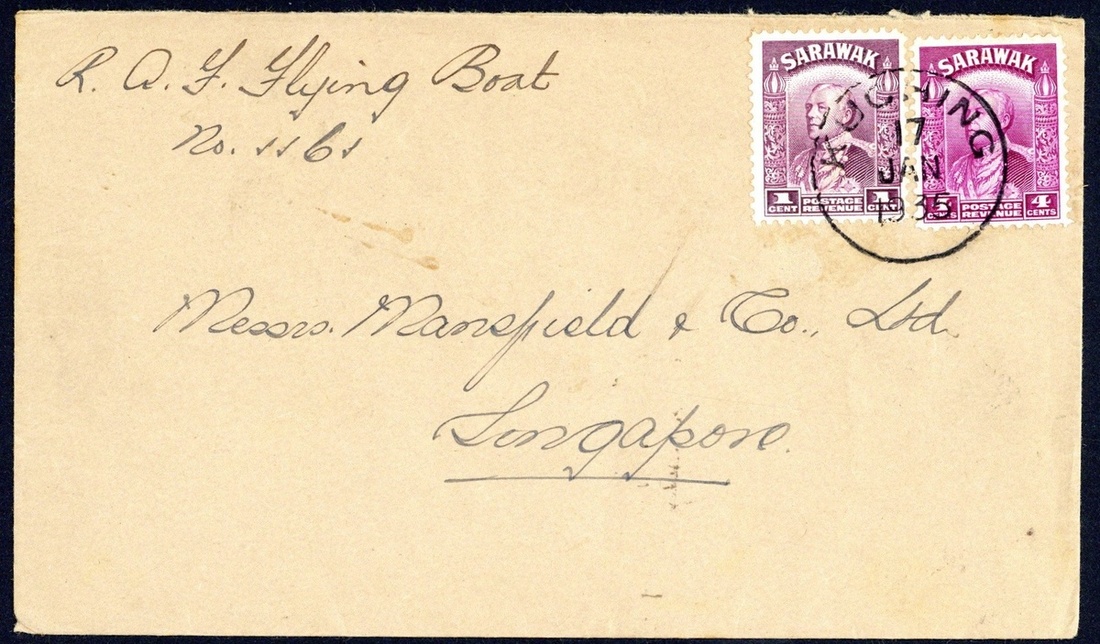 R. A. F. Flying Boat
No.
SARAWAK
1 CENT POSTAGE REVENUE 1 CENT
SARAWAK
CENTS POSTAGE REVENUE 4 CENTS
KUCHING
17
JAN
1935
Messrs. Mansfield & Co., Ltd.
Singapore.